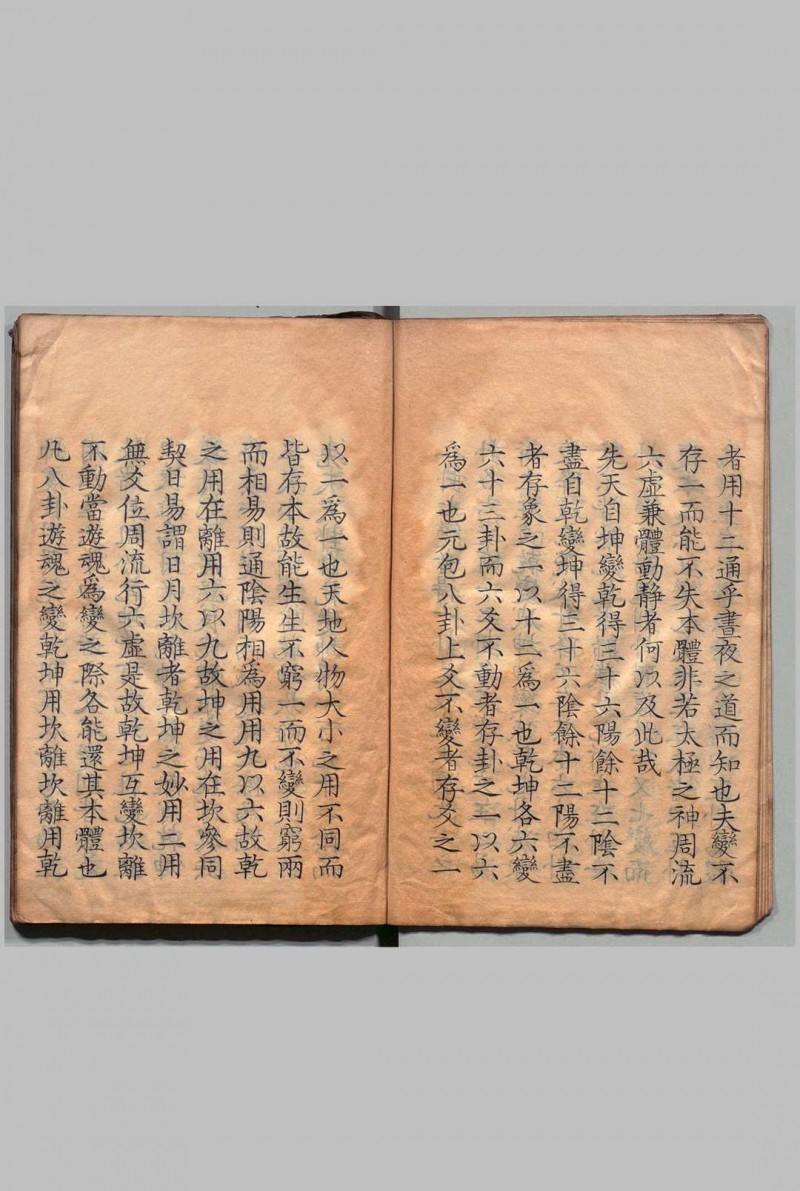 者用十二通乎晝夜之道而知也夫變不
存一而能不失本體非若太極之神周流
六虛兼體動靜者何以及此哉
先天自坤變乾得三十六陽餘十二陰不
盡自乾變坤得三十六陰餘十二陽不盡
者存象之一以十二為一也乾坤各六變
六十三卦而六爻不動者存卦之一以六
為一也元包八卦上爻不變者存爻之一
以一為一也天地人物大小之用不同而
皆存本故能生生不窮一而不變則窮兩
而相易則通陰陽相為用用九以六故乾
之用在離用六以九故坤之用在坎參同
契曰易謂日月坎離者乾坤之妙用二用
無爻位周流行六虛是故乾坤互變坎離
不動當遊魂為變之際各能還其本體也
凡八卦遊魂之變乾坤用坎離坎離用乾